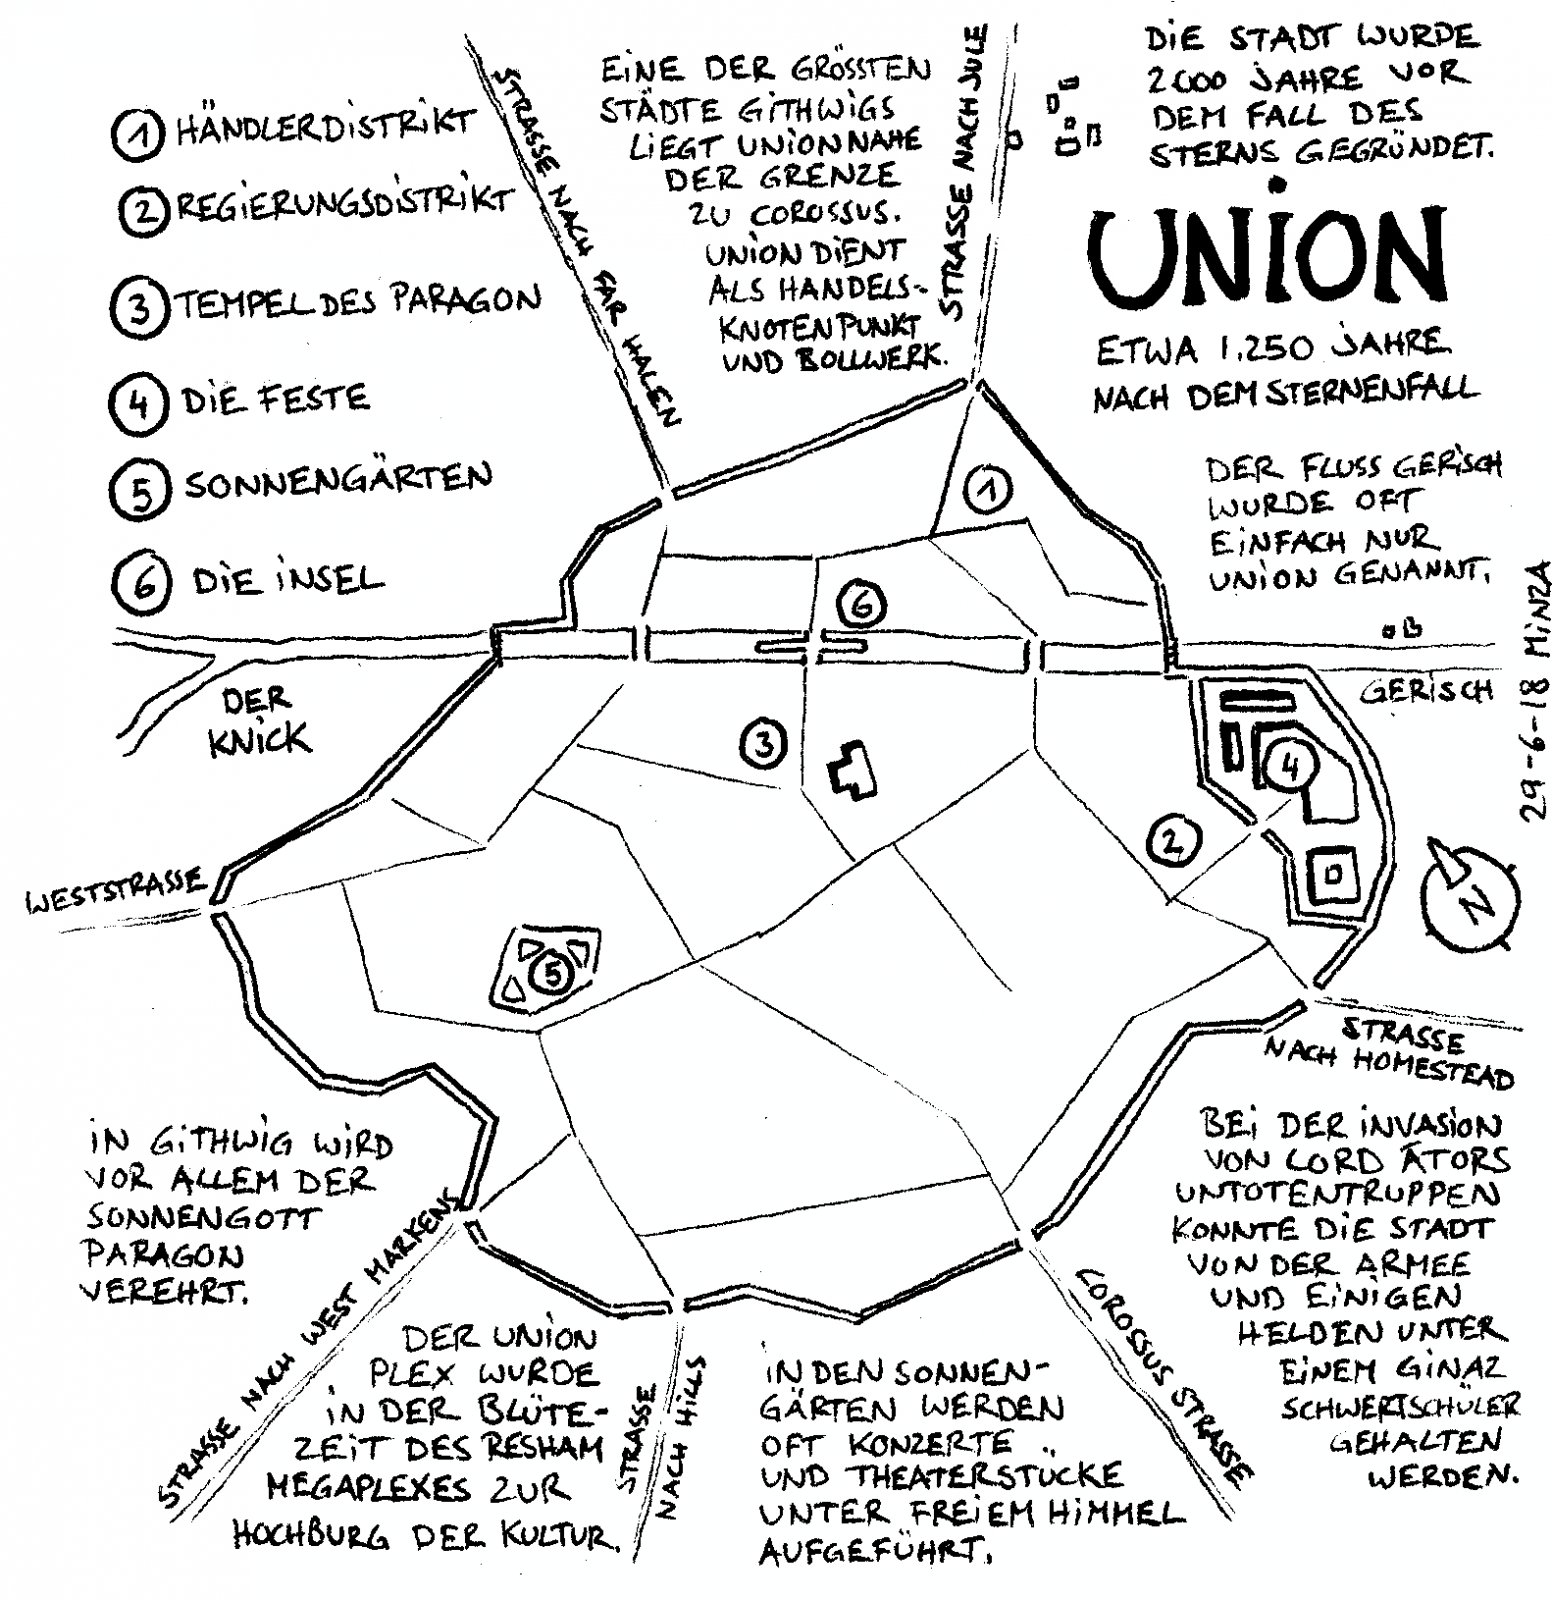 1 HÄNDLERDISTRIKT
2 REGIERUNGSDISTRIKT
3 TEMPEL DES PARAGON
4 DIE FESTE
5 SONNENGÄRTEN
6 DIE INSEL
STRASSE NACH FAR HALEN
EINE DER GRÖSSTEN
STÄDTE GITHWIGS
LIEGT UNION NAHE
DER GRENZE
ZU COROSSUS.
UNION DIENT
ALS HANDELS-
KNOTENPUNKT
UND BOLLWERK.
STRASSE NACH JULE
DIE STADT WURDE
2000 JAHRE VOR
DEM FALL DES
STERNS GEGRÜNDET.
UNION
ETWA 1.250 JAHRE
NACH DEM STERNENFALL
DER FLUSS GERISCH
WURDE OFT
EINFACH NUR
UNION GENANNT.
29-6-18 MINZA
1
6
GERISCH
DER
KNICK
3
4
2
N
WESTSTRASSE
5
STRASSE
NACH HOMESTEAD
IN GITHWIG WIRD
VOR ALLEM DER
SONNENGOTT
PARAGON
VEREHRT.
STRASSE NACH WEST MARKENS
DER UNION
PLEX WURDE
IN DER BLÜTE-
ZEIT DES RESHAM
MEGAPLEXES ZUR
HOCHBURG DER KULTUR.
STRASSE
NACH HILLS
IN DEN SONNEN-
GÄRTEN WERDEN
OFT KONZERTE
UND THEATERSTÜCKE
UNTER FREIEM HIMMEL
AUFGEFÜHRT.
COROSSUS STRASSE
BEI DER INVASION
VON LORD ÄTORS
UNTOTENTRUPPEN
KONNTE DIE STADT
VON DER ARMEE
UND EINIGEN
HELDEN UNTER
EINEM GINAZ
SCHWERTSCHÜLER
GEHALTEN
WERDEN.